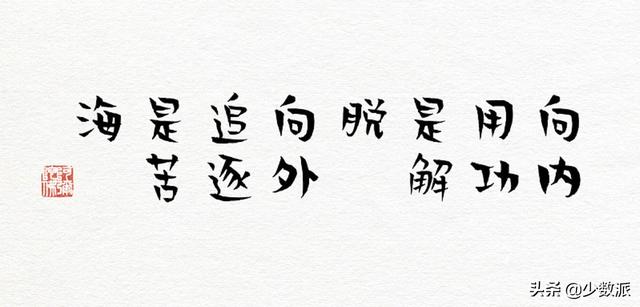 向内
用功
是解
脱
向外
追逐
是苦
海
头条 @少数派